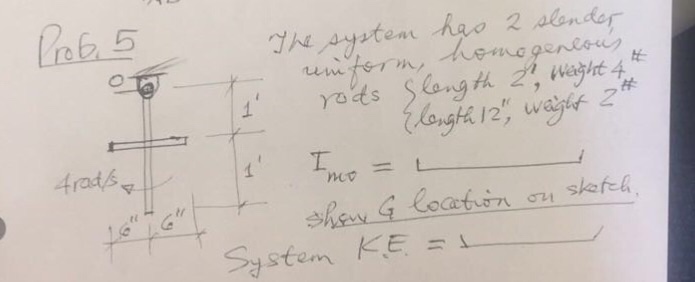 Prob. 5
The system has 2 slender
uniform, homogeneous
rods { length 2', weight 4#
{ length 12", weight 2#
O
1'
1'
I mo =
4 rad/s
show G location on sketch.
6" 6"
System K.E. =